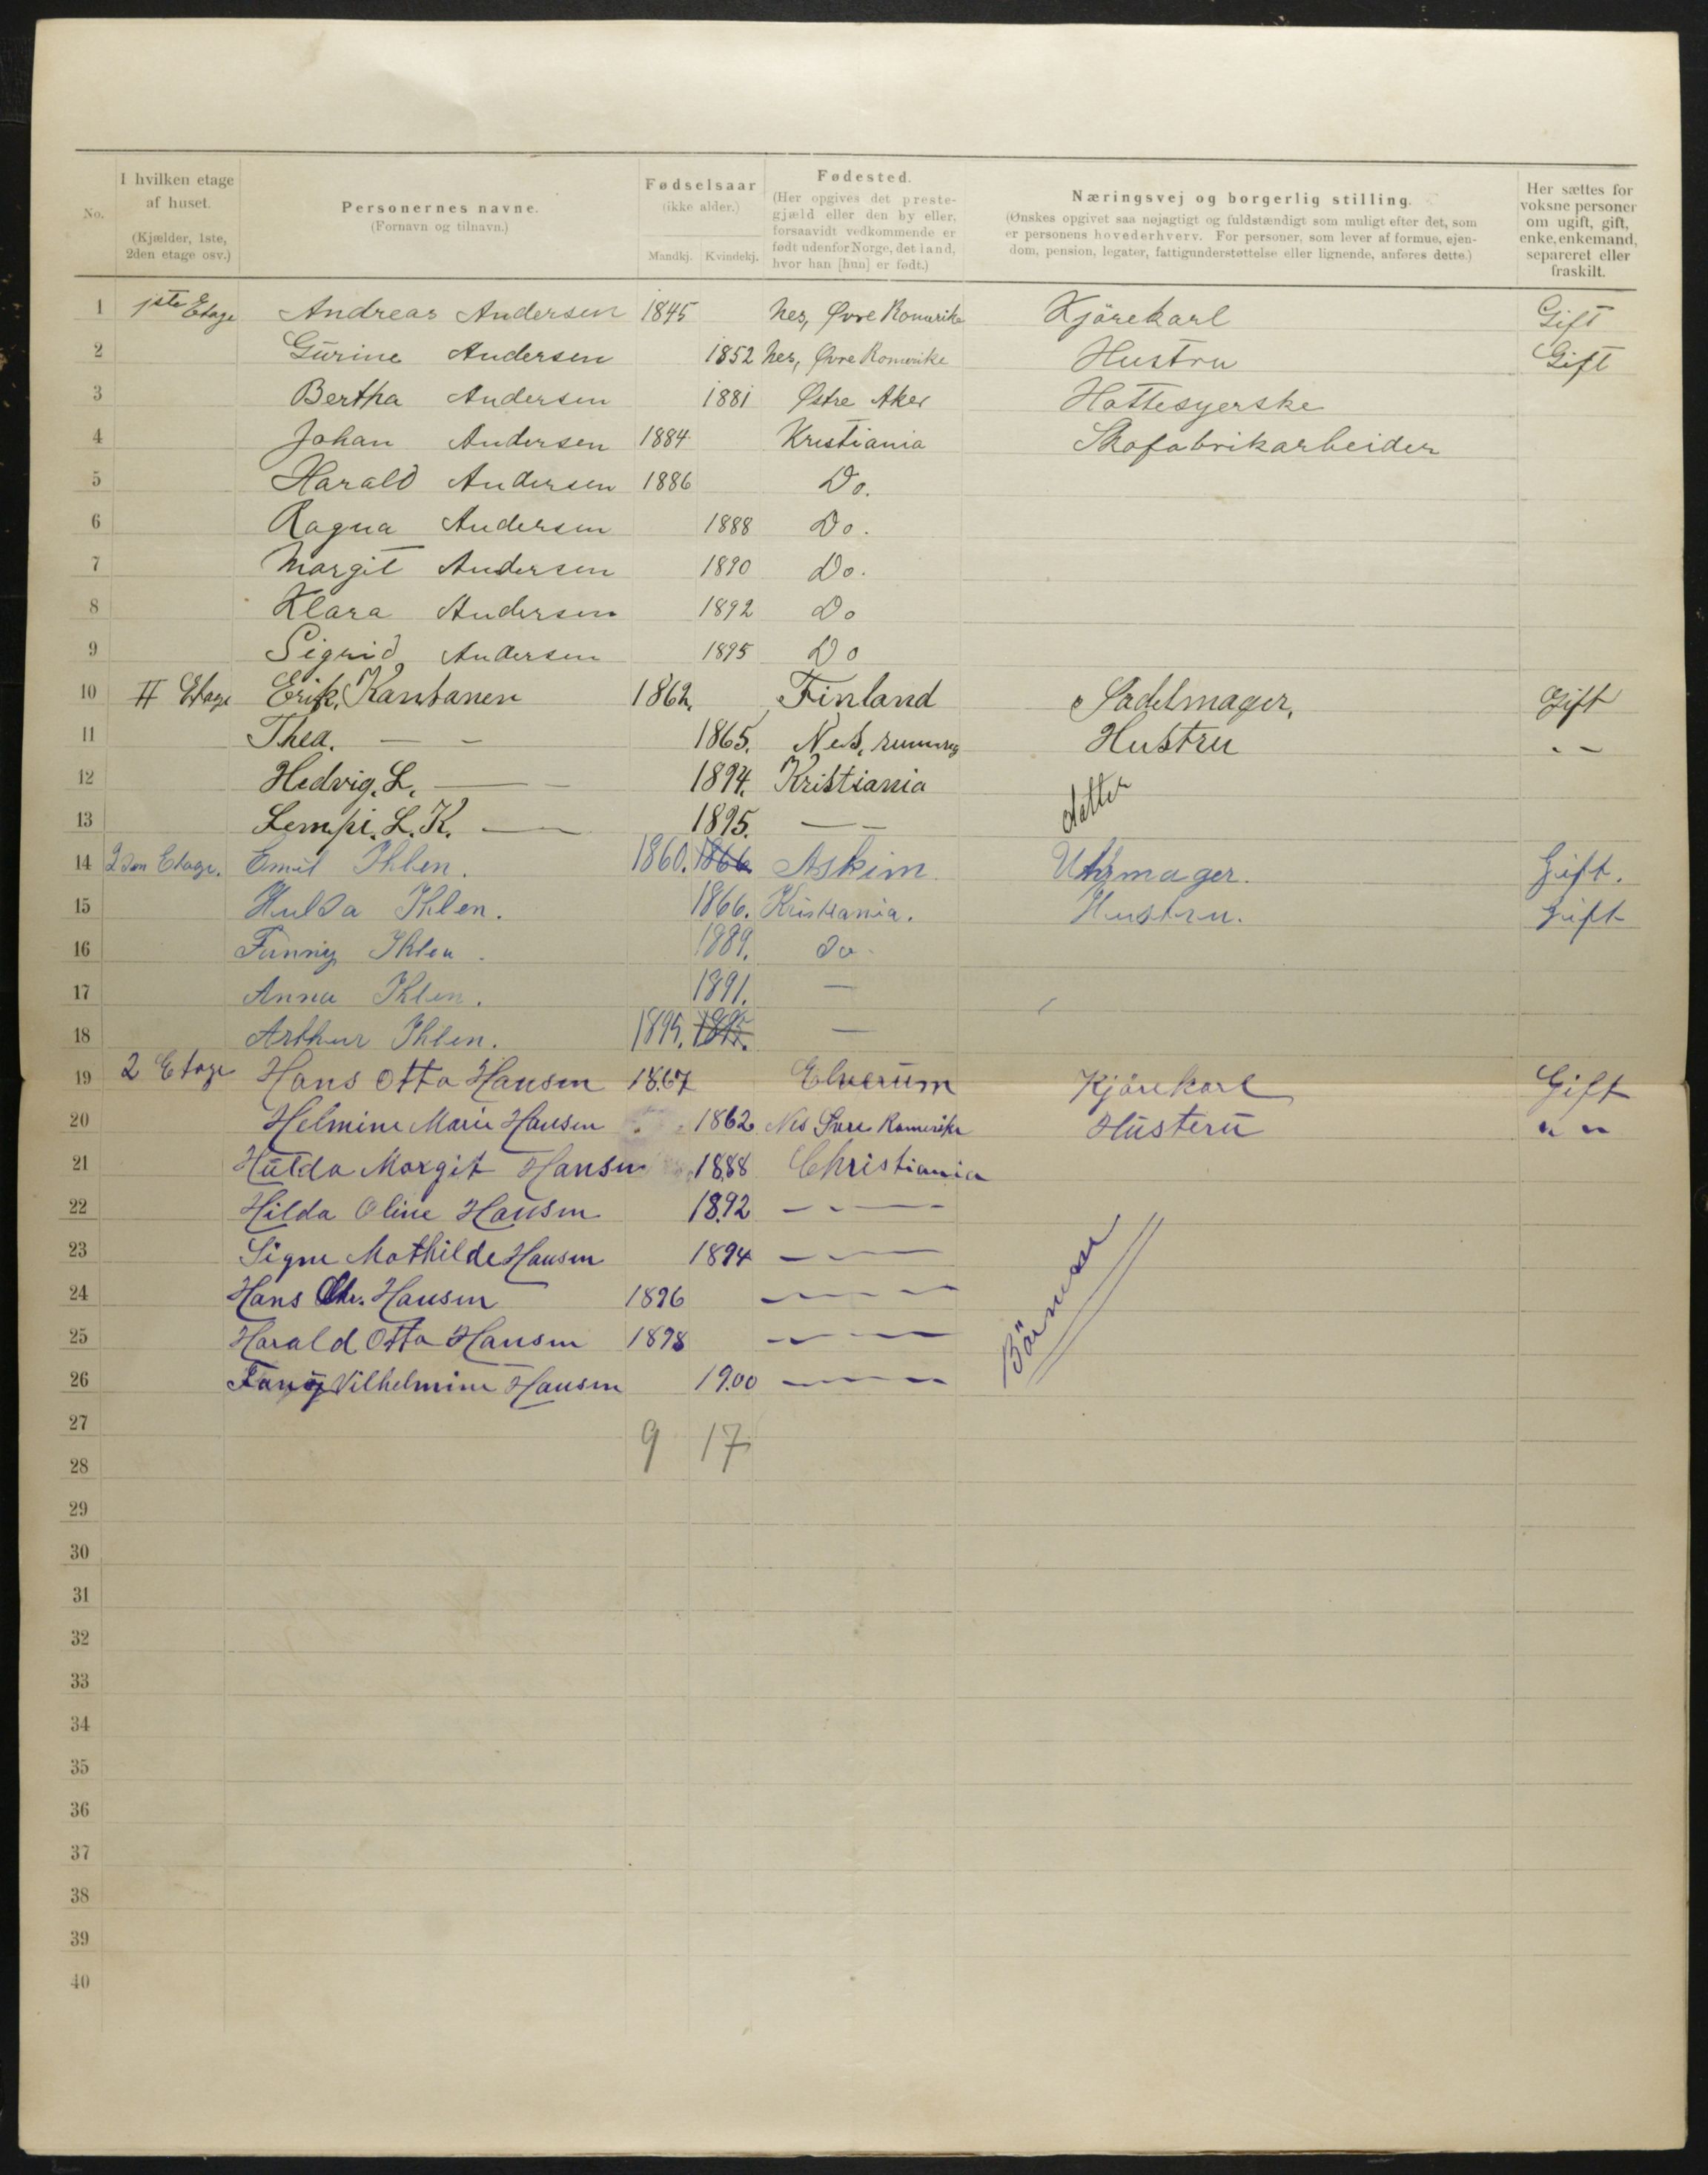 No.
I hvilken etage af huset.
(Kjælder, 1ste, 2den etage osv.)
Personernes navne.
(Fornavn og tilnavn.)
Fødselsaar
(ikke alder.)
Mandkj. Kvindekj.
Fødested.
(Her opgives det prestegjæld eller den by eller, forsaavidt vedkommende er født udenfor Norge, det land, hvor han [hun] er født.)
Næringsvej og borgerlig stilling.
(Ønskes opgivet saa nøjagtigt og fuldstændigt som muligt efter det, som er personens hovederhverv. For personer, som lever af formue, ejendom, pension, legater, fattigunderstøttelse eller lignende, anføres dette.)
Her sættes for voksne personer om ugift, gift, enke, enkemand, separeret eller fraskilt.
1 1ste Etage Andreas Andersen 1845 Nes, Øvre Romerike Kjörekarl Gift
2 Gurine Andersen 1852 Nes, Øvre Romerike Hustru Gift
3 Bertha Andersen 1881 Østre Aker Hattesyerske
4 Johan Andersen 1884 Kristiania Skofabrikarbeider
5 Harald Andersen 1886 Do.
6 Ragna Andersen 1888 Do.
7 Margit Andersen 1890 Do.
8 Klara Andersen 1892 Do
9 Sigrid Andersen 1895 Do
10 II Etage Erik Kantanen 1862. Finland Sadelmager, Gift
11 Thea. — - 1865. Nes, Hustru - -
12 Hedvig. L. — - 1894. Kristiania
Datter
13 Lempi. L. K. — 1895. — -
14 2den Etage. Emil Ihlen. 1860. 1866 Askim Uhrmager. Gift.
15 Hulda Ihlen. 1866. Kristiania. Hustru. Gift
16 Fanny Ihlen. 1889. do.
17 Anna Ihlen. 1891. —
18 Arthur Ihlen. 1895. 1895. —
19 2 Etage Hans Otto Hansen 1867 Elverum Kjörekarl Gift
20 Helmine Marie Hansen 1862 Nes Romerike Husteru " "
21 Hulda Margit Hansen 1888 Christiania
22 Hilda Oline Hansen 1892 - - —
23 Signe Mathilde Hansen 1894 — —
Börnene
24 Hans Chr. Hansen 1896 — - —
25 Harald Otto Hansen 1898 — - —
26 Fanny Vilhelmine Hansen 1900 — - —
27
9 17
28
29
30
31
32
33
34
35
36
37
38
39
40